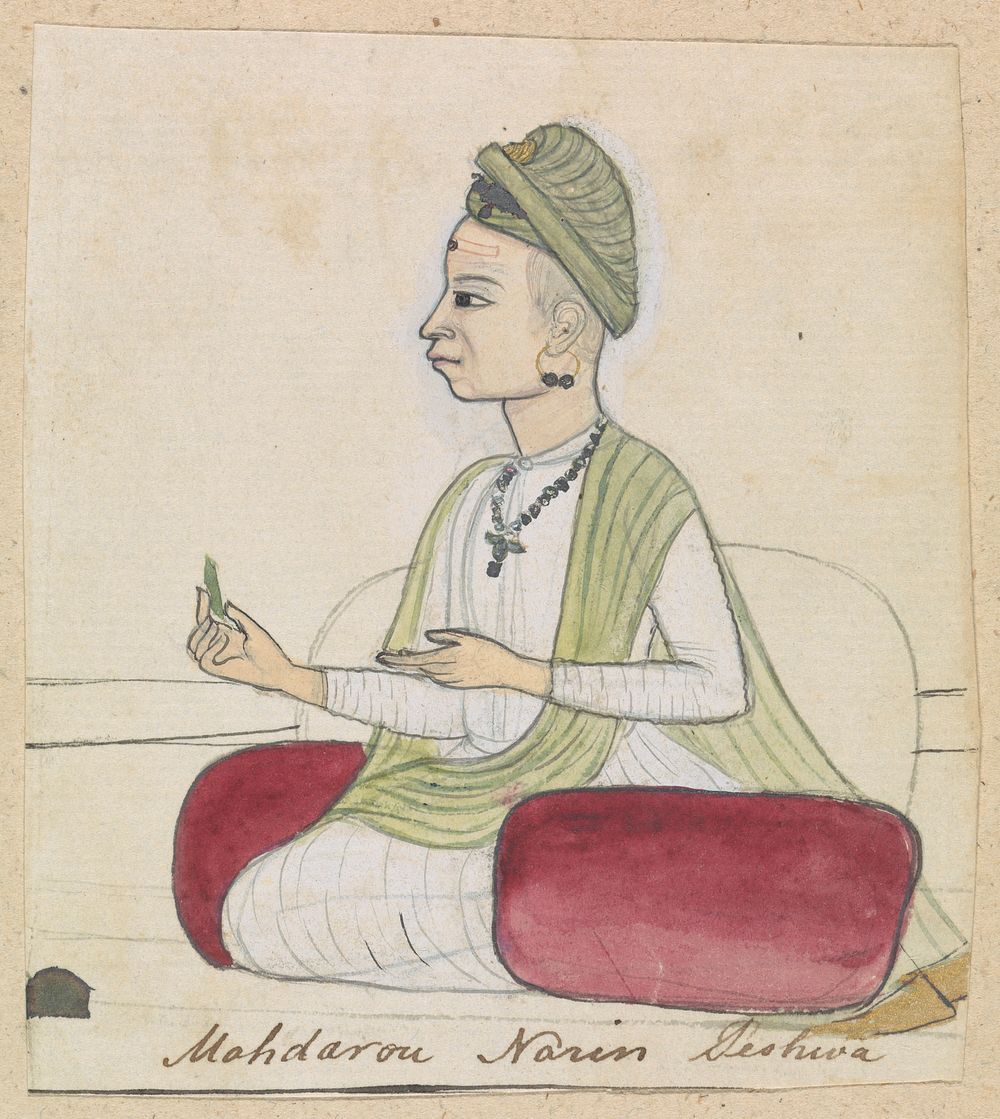 Mahdarou Narin Peshwa